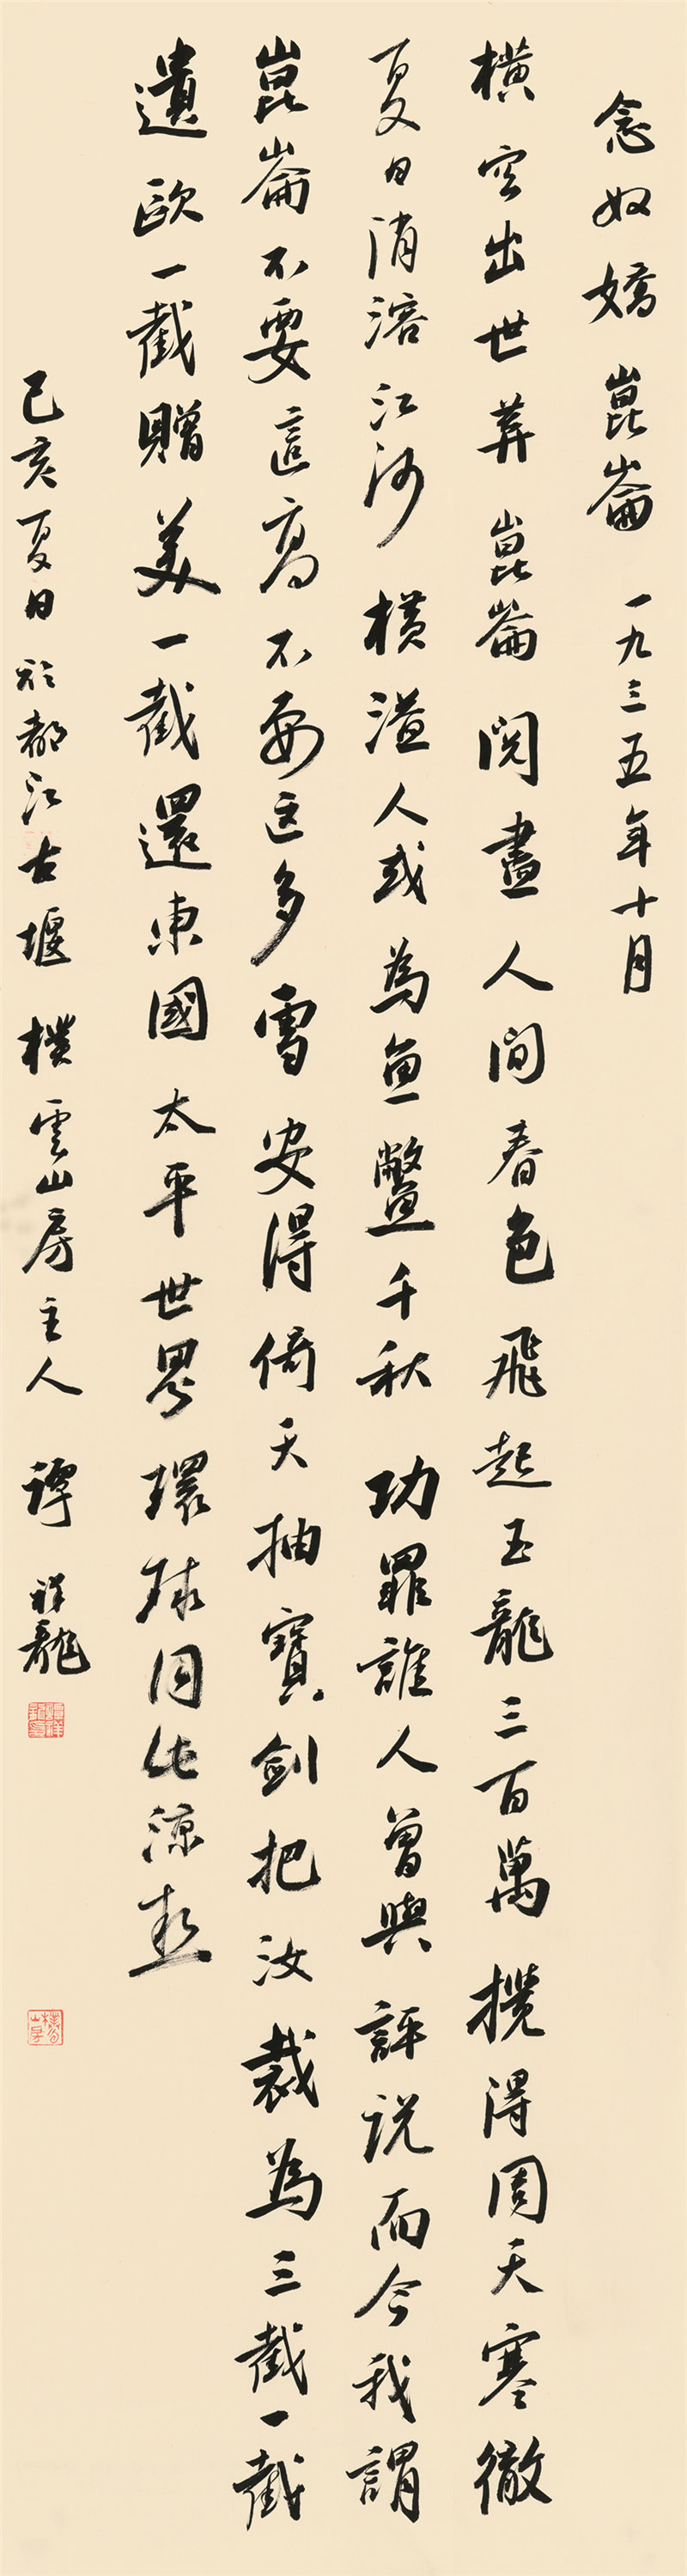 念奴嬌 崑崙 一九三五年十月
橫空出世莽崑崙閱盡人間春色飛起玉龍三百萬攪得周天寒徹
夏日消溶江河橫溢人或為魚鱉千秋功罪誰人曾與評說而今我謂
崑崙不要這高不要这多雪安得倚天抽寶劍把汝裁為三截一截
遺歐一截贈美一截還東國太平世界環球同此涼熱
己亥夏日於都江古堰樸雲山房主人譚祥龍